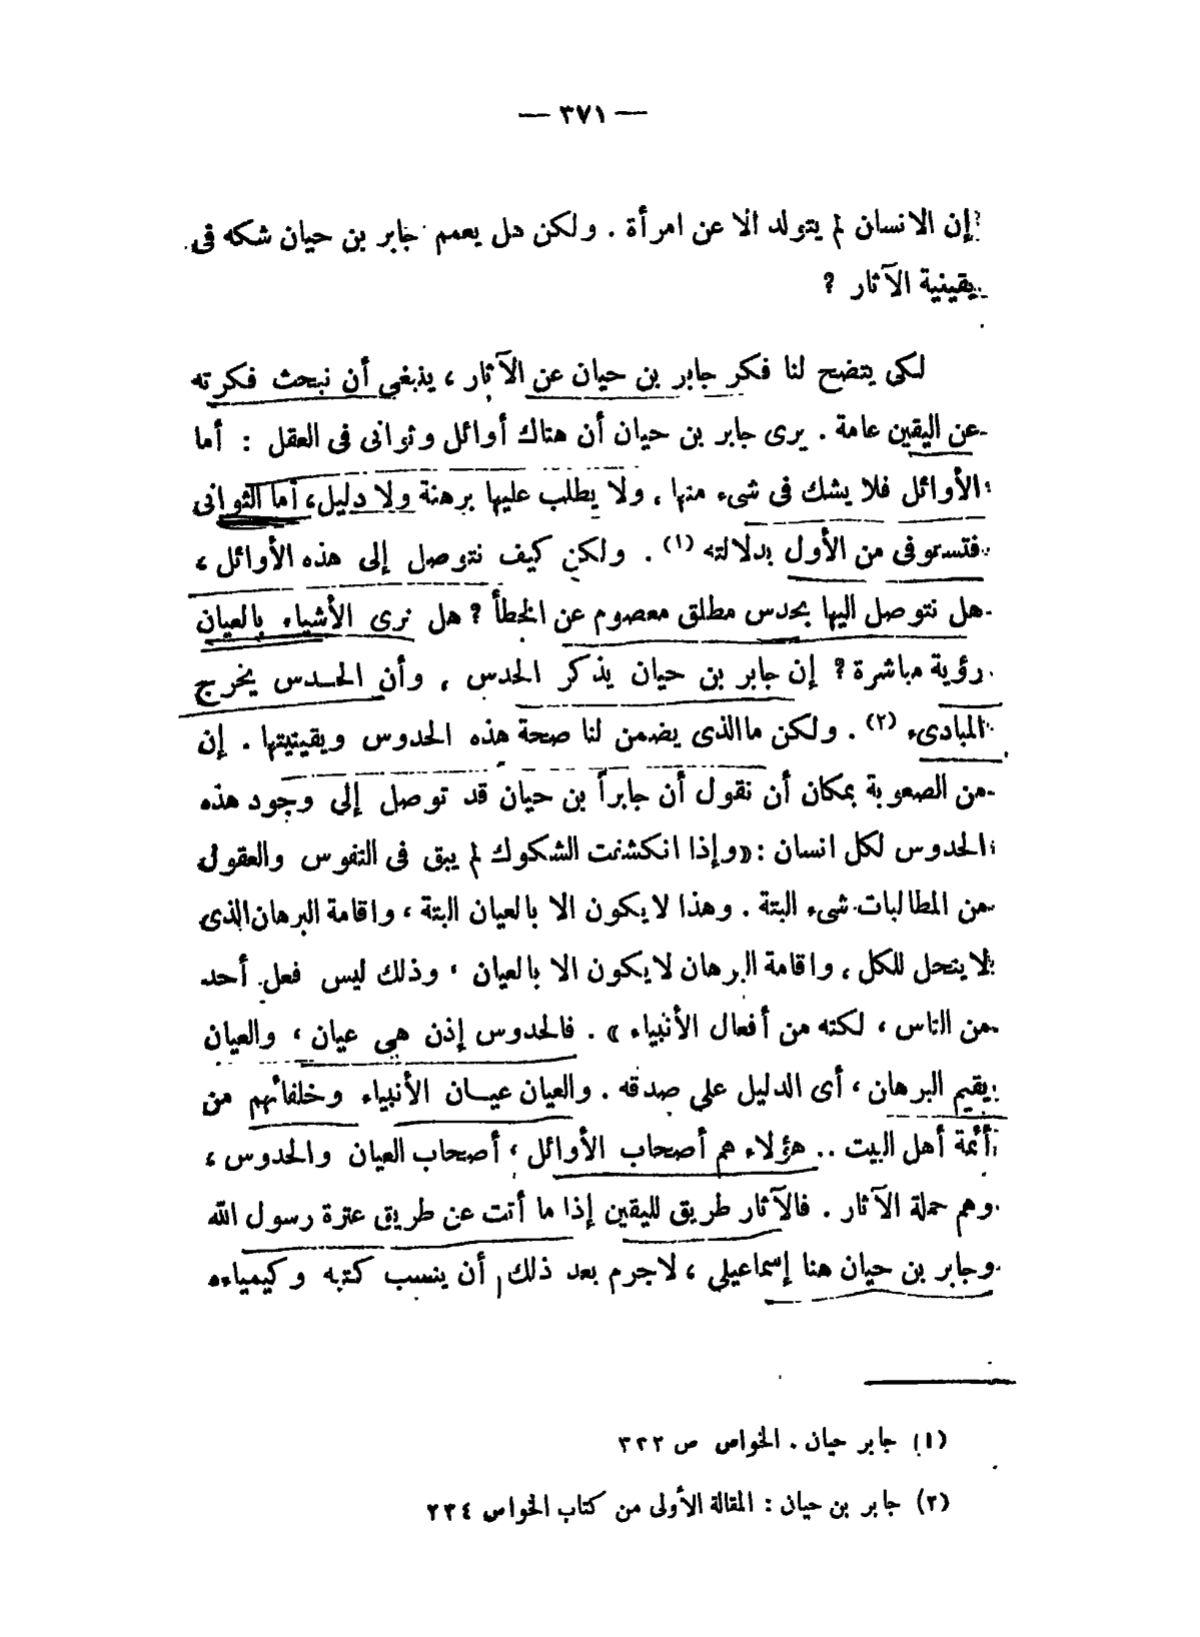 — ٣٧١ —
إن الانسان لم يتولد الا عن امرأة . ولكن هل يعمم جابر بن حيان شكه فى
يقينية الآثار ؟
لكى يتضح لنا فكر جابر بن حيان عن الآثار ، ينبغى أن نبحث فكرته
عن اليقين عامة . يرى جابر بن حيان أن هناك أوائل وثوانى فى العقل : أما
الأوائل فلا يشك فى شىء منها ، ولا يطلب عليها برهنة ولا دليل ، أما الثوانى
فتستوفى من الأول بدلالته (١) . ولكن كيف نتوصل إلى هذه الأوائل ،
هل نتوصل اليها بحدس مطلق معصوم عن الخطأ ؟ هل نرى الأشياء بالعيان
رؤية مباشرة ؟ إن جابر بن حيان يذكر الحدس ، وأن الحدس يخرج
المبادىء (٢) . ولكن ما الذى يضمن لنا صحة هذه الحدوس ويقينيتها . إن
من الصعوبة بمكان أن نقول أن جابراً بن حيان قد توصل إلى وجود هذه
الحدوس لكل انسان : «وإذا انكشفت الشكوك لم يبق فى النفوس والعقول
من المطالبات شىء البتة . وهذا لا يكون الا بالعيان البتة ، واقامة البرهان الذى
لا ينحل للكل ، واقامة البرهان لا يكون الا بالعيان ، وذلك ليس فعل أحد
من الناس ، لكنه من أفعال الأنبياء » . فالحدوس إذن هى عيان ، والعيان
يقيم البرهان ، أى الدليل على صدقه . والعيان عيان الأنبياء وخلفائهم من
أئمة أهل البيت .. هؤلاء هم أصحاب الأوائل ، أصحاب العيان والحدوس ،
وهم حملة الآثار . فالآثار طريق لليقين إذا ما أتت عن طريق عترة رسول الله
وجابر بن حيان هنا إسماعيلى ، لاجرم بعد ذلك أن ينسب كتبه وكيمياءه
(١) جابر حيان . الخواص ص ٢٣٢
(٢) جابر بن حيان : المقالة الأولى من كتاب الخواص ٢٣٤